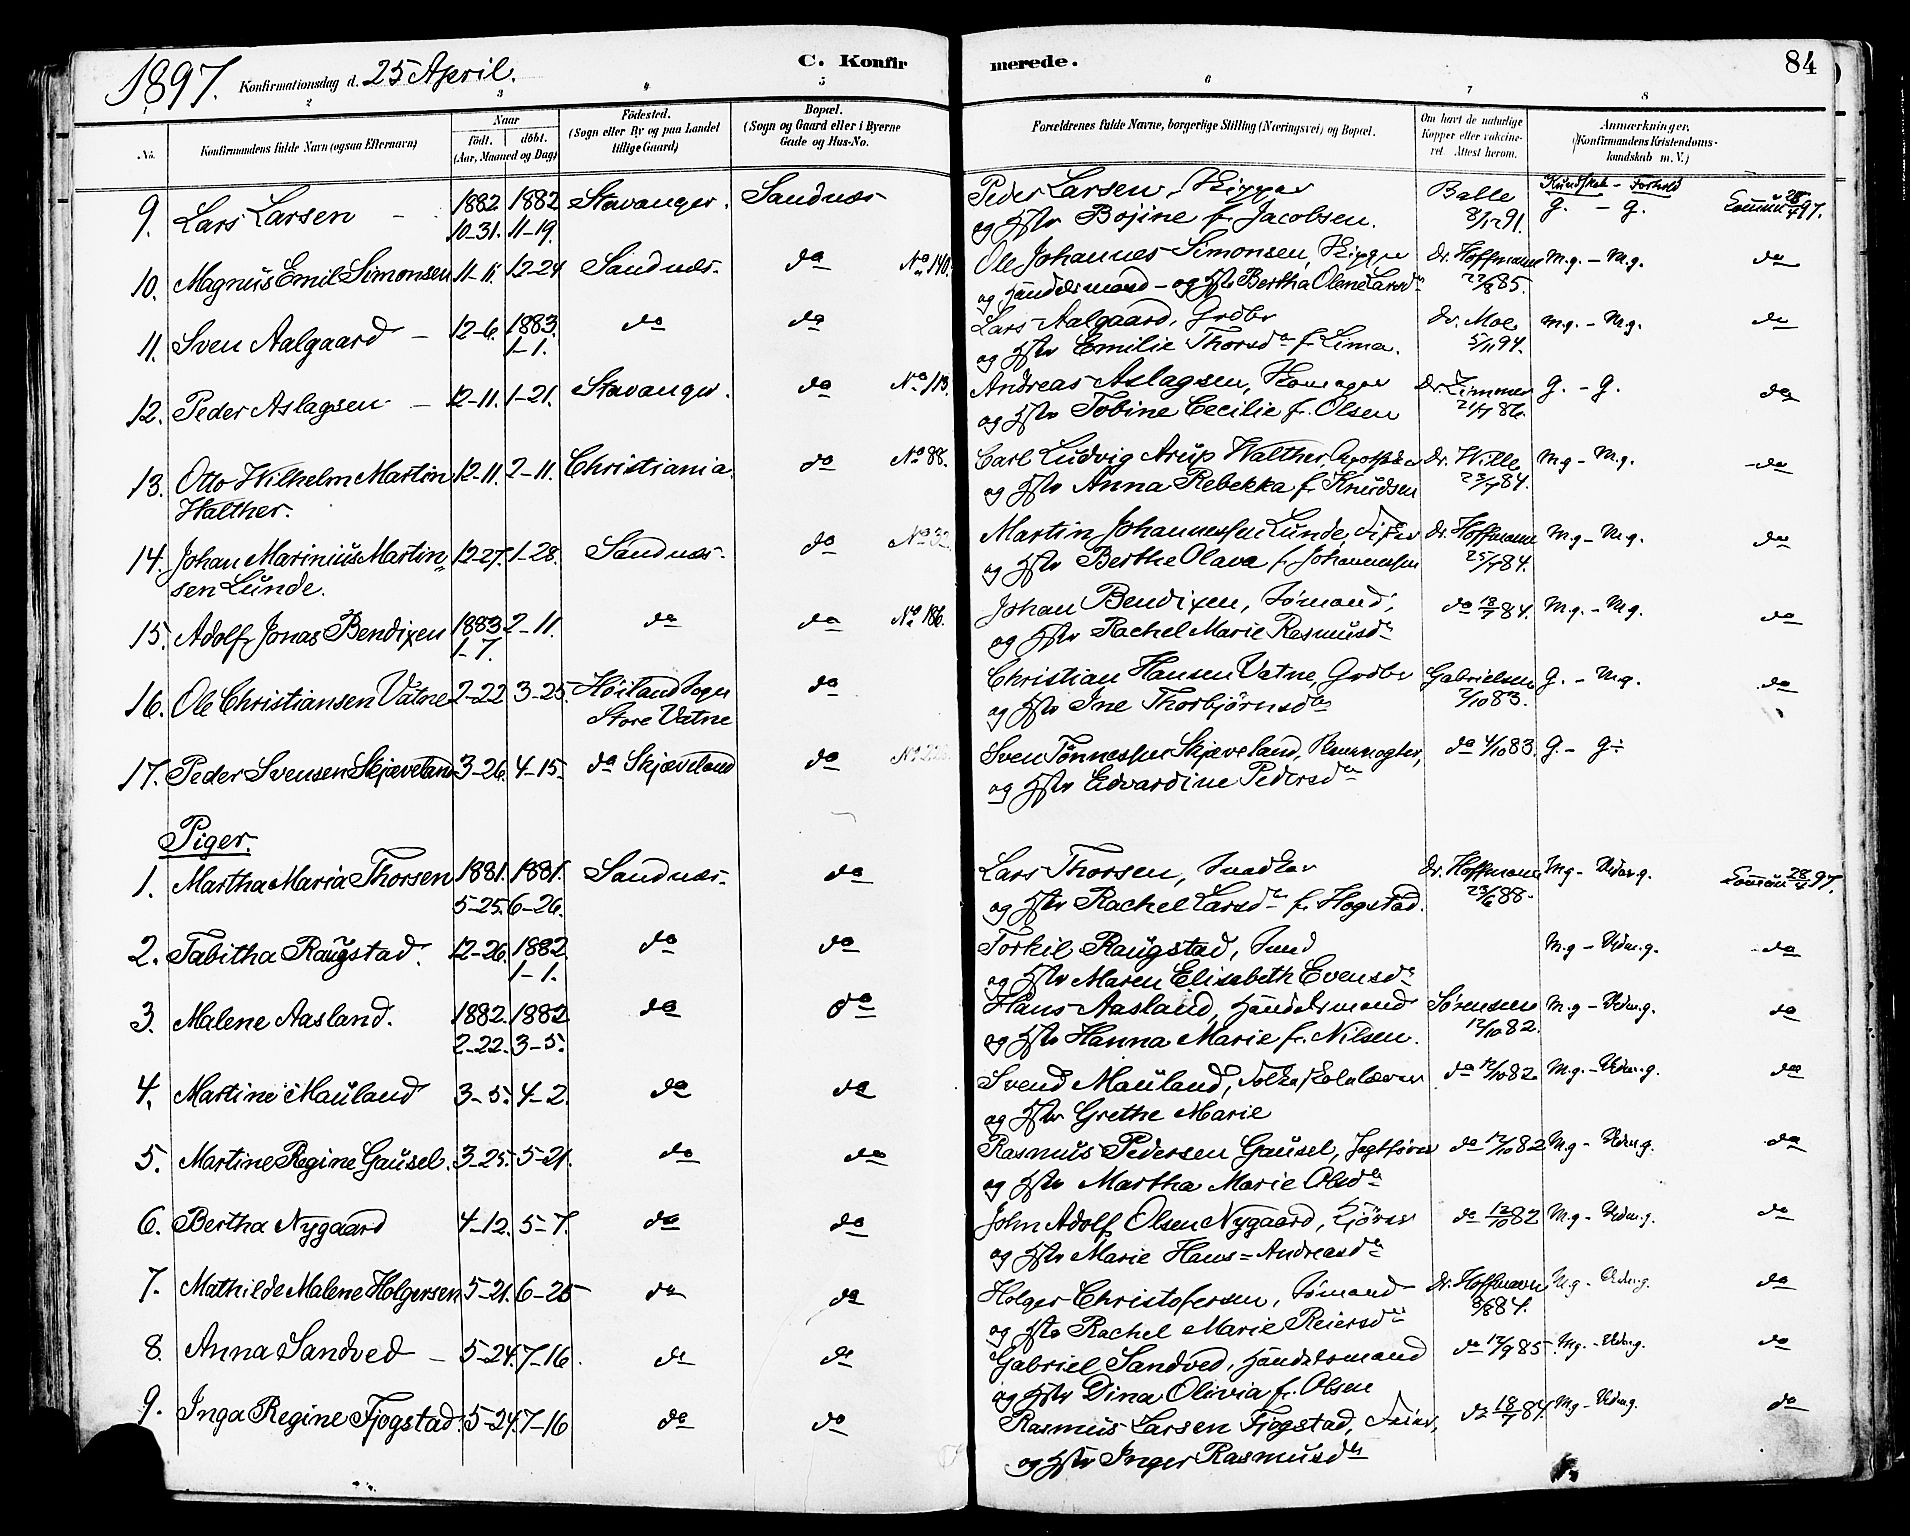 1897. Konfirmationsdag d. 25 April. C. Konfirmerede. 84
2 3 4 5 6 7 8
No. Konfirmandens fulde Navn (ogsaa Efternavn)
Naar
født. døbt.
(Aar, Maaned og Dag)
Fødested.
(Sogn eller By og paa Landet
tillige Gaard)
Bopæl.
(Sogn og Gaard eller i Byerne
Gade og Hus-No.
Forældrenes fulde Navne, borgerlige Stilling (Næringsvei) og Bopæl.
Om havt de naturlige
Kopper eller vaccineret. Attest herom.
Anmærkninger.
(Konfirmandens Kristendomskundskab m. V.)
Kundskab - Forhold
9. Lars Larsen - 1882 1882 Stavanger. Sandnæs Peder Larsen, Skipper Balle g. - g. Commun 28/4 97.
10-31. 11-19. og Hstr Bojine f. Jacobsen. 8/12 91.
10. Magnus Emil Simonsen 11-11. 12-24 Sandnæs. do No 140. Ole Johannes Simonsen, Skipper dr. Hoffmann M.g. - M.g. do
og Handelsmand - og Hstr Bertha Olene Larsdr 22/8 85.
11. Sven Aalgaard - 12-6. 1883. do do Lars Aalgaard, Grdbr dr. Moe M.g. - M.g. do
1-1. og Hstr Emilie Thorsdr f. Lima. 5/11 94.
12. Peder Aslagsen - 12-11. 1-21. Stavanger. do No 113. Andreas Aslagsen, dr. Zimmer g. - g. do
og Hstr Tobine Cecilie f. Olsen 86.
13. Otto Wilhelm Martin 12-11. 2-11. Christiania. do No 88. Carl Ludvig Arup Walther, dr. Wille M.g - M.g. do
Walther. og Hstr Anna Rebekka f. Knudsen 84.
14. Johan Marinius Martin- 12-27. 1-28. Sandnæs. do No 32 Martin Johannessen Lunde, Fisker dr. Hoffmann M.g - M.g. do
sen Lunde. og Hstr Berthe Olava f. Johannessen 84.
15. Adolf Jonas Bendixen 1883 2-11. do do No 186. Johan Bendixen, Sømand, do 84. M.g. - M.g. do
1-7. og Hstr Rachel Marie Rasmusdr
16. Ole Christiansen Vatne 2-22 3-25. Høiland Sogn do Christian Hansen Vatne, Grdbr Gabrielsen g. - M.g. do
Store Vatne og Hstr Ine Thorbjørnsdr 2/10 83.
17. Peder Svensen Skjæveland 3-26. 4-15. do Skjæveland do Sven Tønnessen Skjæveland, do 4/10 83. g. - g.
og Hstr Edvardine Pedersdr
Piger.
1. Martha Maria Thorsen 1881. 1881. Sandnæs. do Lars Thorsen, Snedker dr. Hoffmann M.g - Udm.g. Commun 28/4 97.
5-25. 6-26. og Hstr Rachel Larsdr f. Hogstad. 23/6 88.
2. Tabitha Raugstad. 12-26. 1882. do do Torkil Raugstad, M.g - Udm.g. do
1-1. og Hstr Maren Elisabeth Evensdr
3. Malene Aasland. 1882. 1882 do do Hans Aasland, Handelsmand Sørensen M.g - Udm.g. do
2-22. 3-5. og Hstr Hanna Marie f. Nilsen. 12/10 82.
4. Martine Mauland 3-5. 4-2. do do Svend Mauland, Folkeskolelærer do 12/10 82. M.g. - Udm.g. do
og Hstr Grethe Marie
5. Martine Regine Gausel. 3-25. 5-21. do do Rasmus Pedersen Gausel, Jagtfører do 12/10 82 M.g - Udm.g. do
og Hstr Martha Marie Olsdr
6. Bertha Nygaard 4-12. 5-7. do do John Adolf Olsen Nygaard, Kjører do 12/10 82 M.g - Udm.g. do
og Hstr Marie Hans=Andreasdr
7. Mathilde Malene Holgersen 5-21. 6-25 do do Holger Christofersen, Sømand dr. Hoffmann M.g - Udm.g. do
og Hstr Rachel Marie Reiersdr 84.
8. Anna Sandved - 5-24. 7-16. do do Gabriel Sandved, Handelsmand do 12/9 85. M.g. - Udm.g. do
og Hstr Dina Olivia f. Olsen
9. Inga Regine Fjogstad. 5-24. 7-16 do do Rasmus Larsen Fjogstad, do 18/7 84. M.g - Udm.g. do
og Hstr Inger Rasmusdr